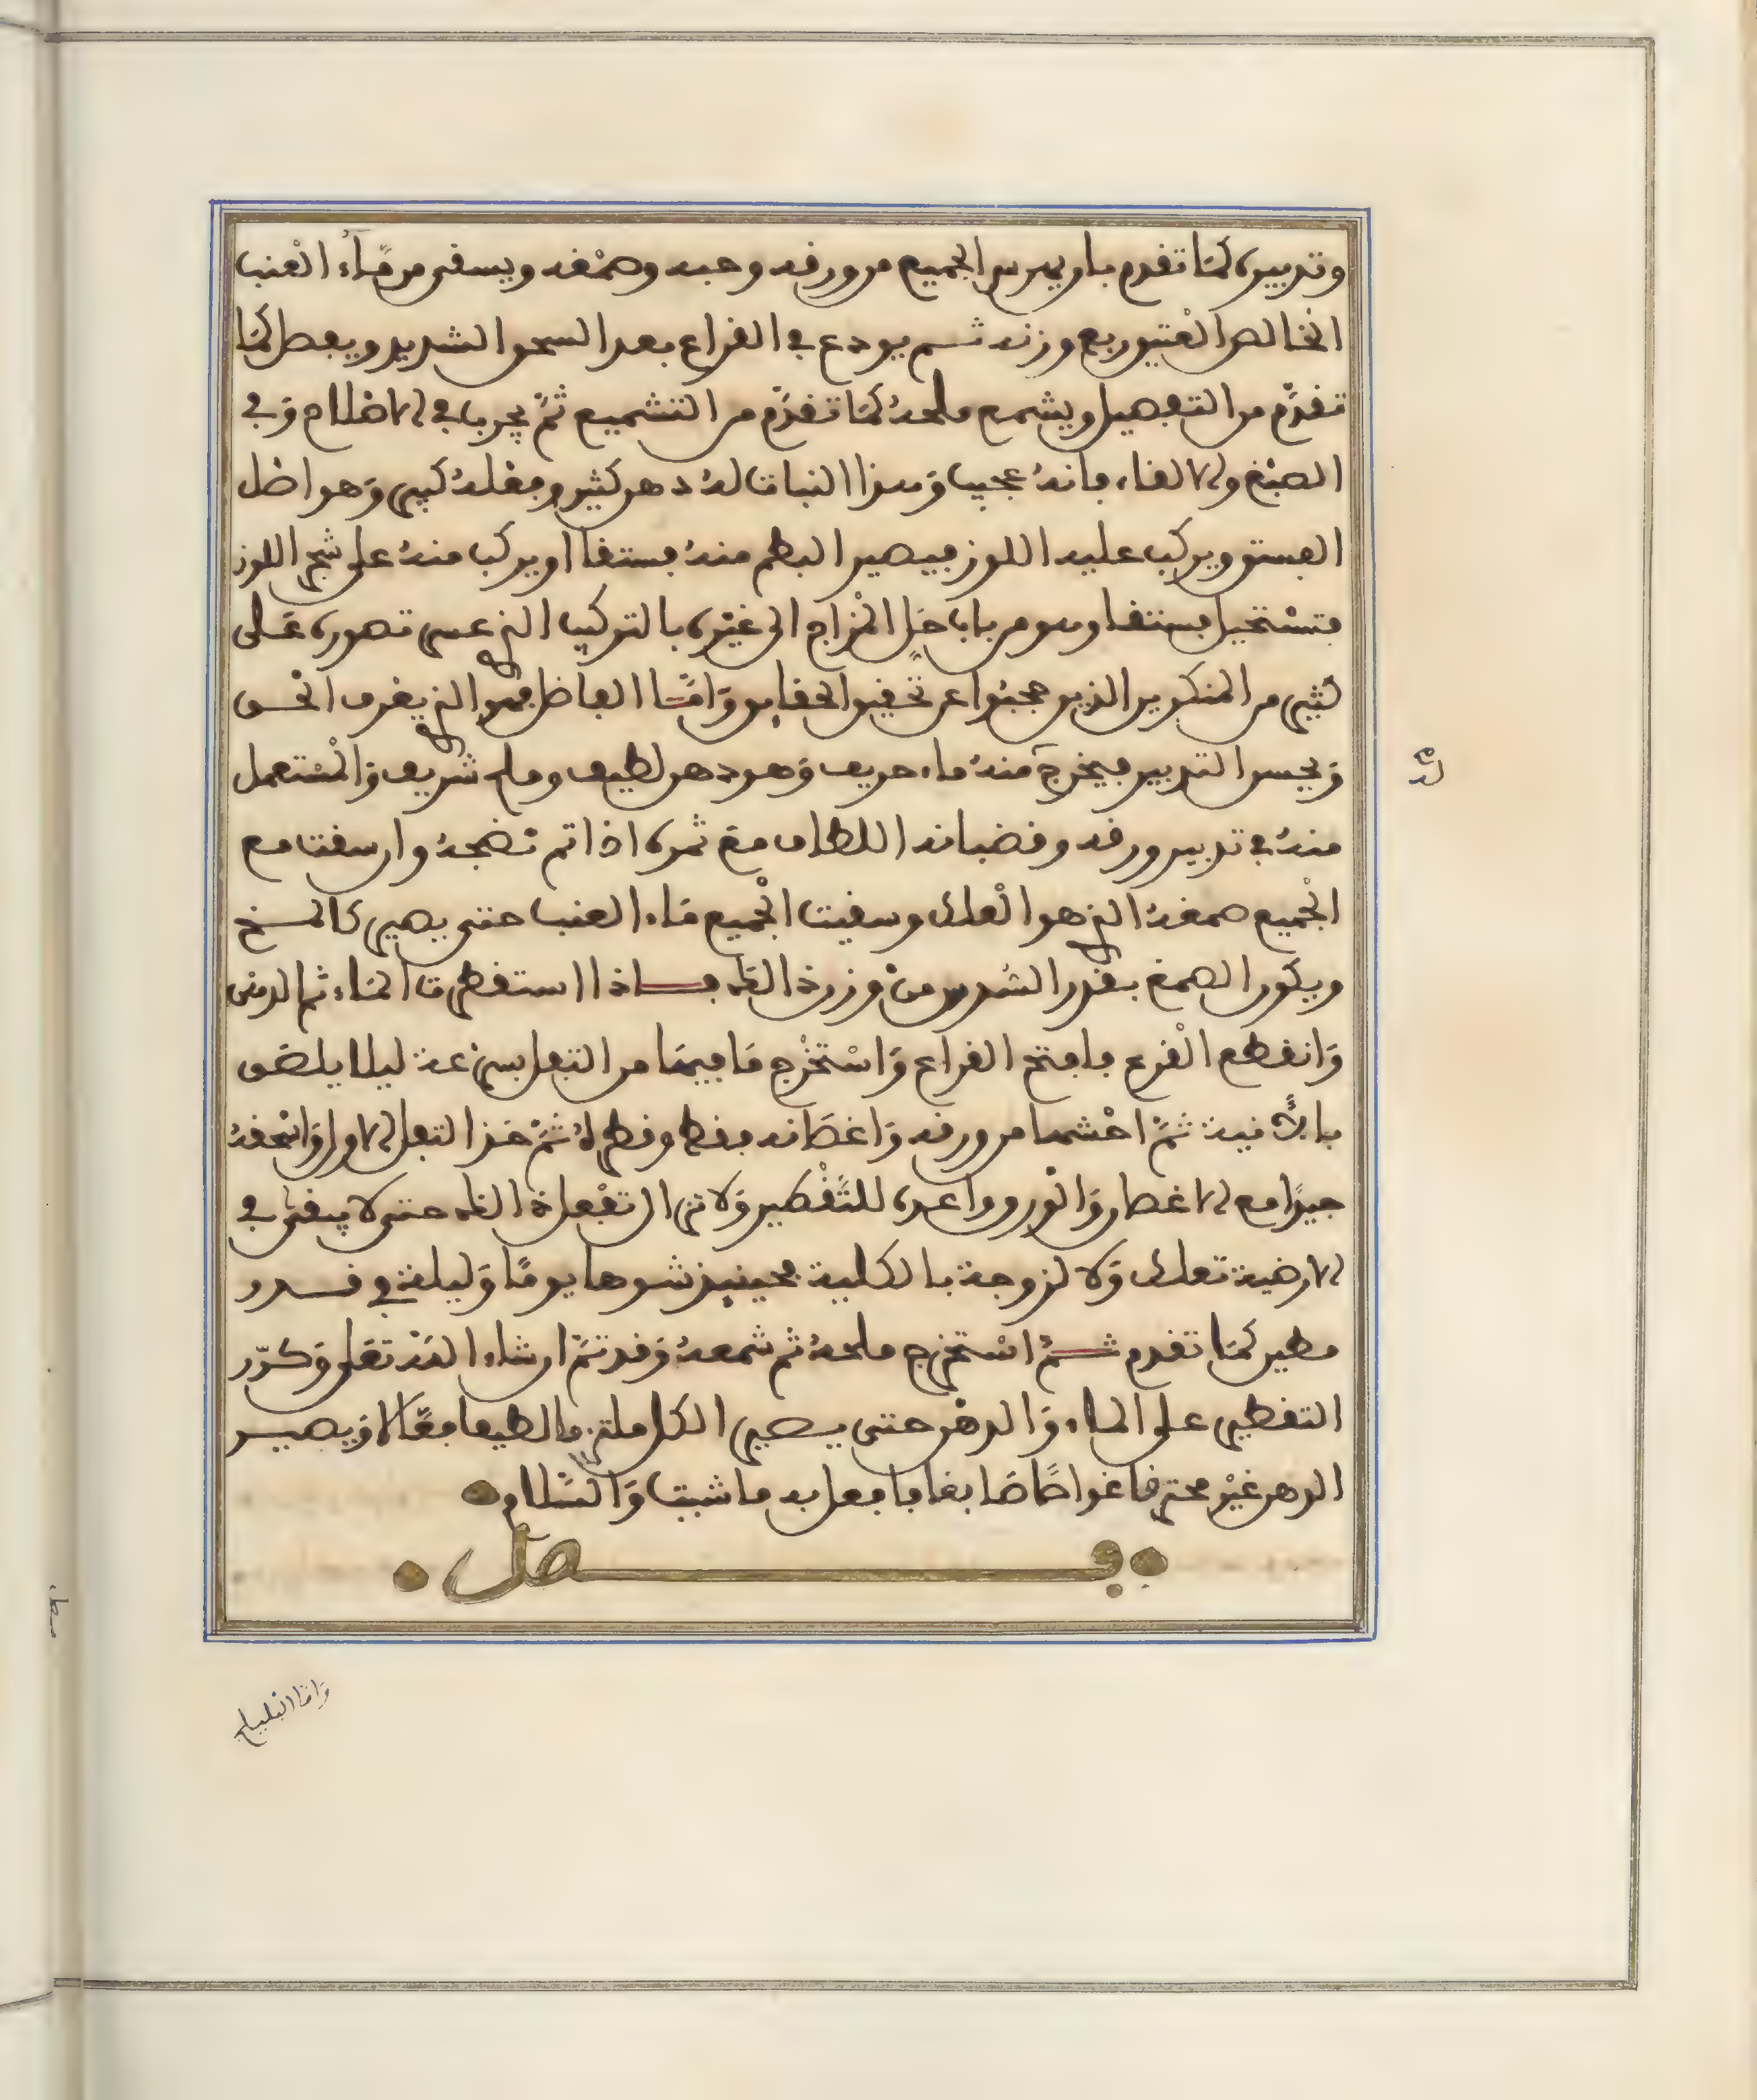 وتدبيره كَمَا تقدم بأن يهرس الجميع من ورقه وحبه وصمْغه ويسقى من مَآء العْنب
الخالص العْتيق ربع وزنه ثــم يودع في القراع بعد السحق الشديد ويفصل كَمَا
تقدَّم من التفصيل ويشمع ملحهُ كَمَا تقدَّم من التشميع ثمَّ يجربا في الاظلام وَفي
الصبْغ والالقاء فانهُ عجيب وَهذا النبات لهُ دهن كثير ومغلهُ كبير وَهو اصل
الفستق ويركب عليه اللوز فيصير البطم منهُ فستقا او يركب منهُ على شجر اللوز
فتسْتحيل فستقا وهو من باب حَل المْزاج الى غيْره بالتركيب الذي عسى تصوره عَلى
كثير من المنكرين الذين حجبوا عن تحقيق الحقايق وَامَّا الفاضل فهو الذي يغرف الحْسن
وَيحسن التدبير فيخرج منهُ ماء حريف وَهو دهن لطيف وملح شريف وَالمْستعمل
لهُ
منهُ في تدبير ورقه وقضبانه اللطاف معَ ثمره اذا تم نضجهُ وان سقت مع
الجْميع صمغهُ الذي هو العْلك وسقيت الجْميع مَاء العنب حتى يصير كالمــخ
ويكون الصمغ بقدر السُدس منْ وزن الثفل فــاذا استقطرت المَاء ثم الدهن
وَانقطع القْرع فافتح القراع وَاسْتخْرج مَا فيهَا من الثفل بسرْعة ليلا يلصق
بالآنية ثمَّ احْشها من ورقه وَاغصَانه فقط وقطرهُ ثمَّ خذ الثفل الاول وَاسْحقهُ
جيدًا مع الاغصان وَالوْرق واعده للتَّقْطير وَلا تزال تفْعل ذلك حتى لا يبقى في
الارضية تعلك وَلا لزوجة بالكلية فحينيذ شوها يومًا وَليلة في قــدر
مطين كَمَا تقدم ثــمَّ اسْتخرج ملحهُ ثم شمعهُ وَقد تمَّ ان شاء الله تعَلى وَكرّر
التقطير على الماء وَالدهْن حتى يــصير الكل ملتزما لطيفا فعَّالا وَيصيــر
الدهن غيْر محترق غواصًا صَابغا فافعل به ما شيت وَالسَّلام
فــــــصل
وَامّا البليلج